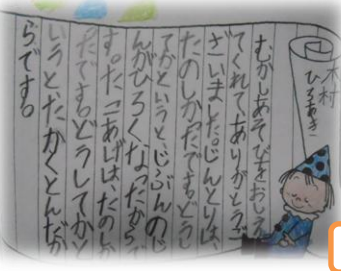 木村
ひろあき
むかしあそびをおしえ
てくれてありがとうご
ざいました。じんとりは、
たのしかたです。どうし
てかというと、じぶんのじ
んがひろくなったからで
す。たこあげは、たのしか
ったです。どうしてかと
いうと、たかくとんだか
らです。